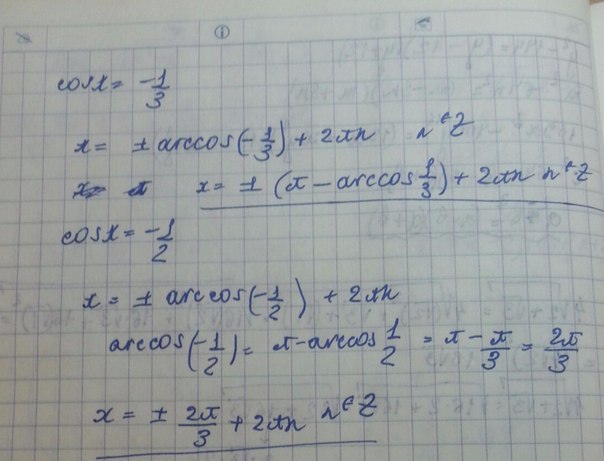 cos x = -1/3
x = ± arccos(-1/3) + 2πn n ∈ Z
x = ± (π - arccos 1/3) + 2πn n ∈ Z
cos x = -1/2
x = ± arccos(-1/2) + 2πn
arccos(-1/2) = π - arccos 1/2 = π - π/3 = 2π/3
x = ± 2π/3 + 2πn n ∈ Z